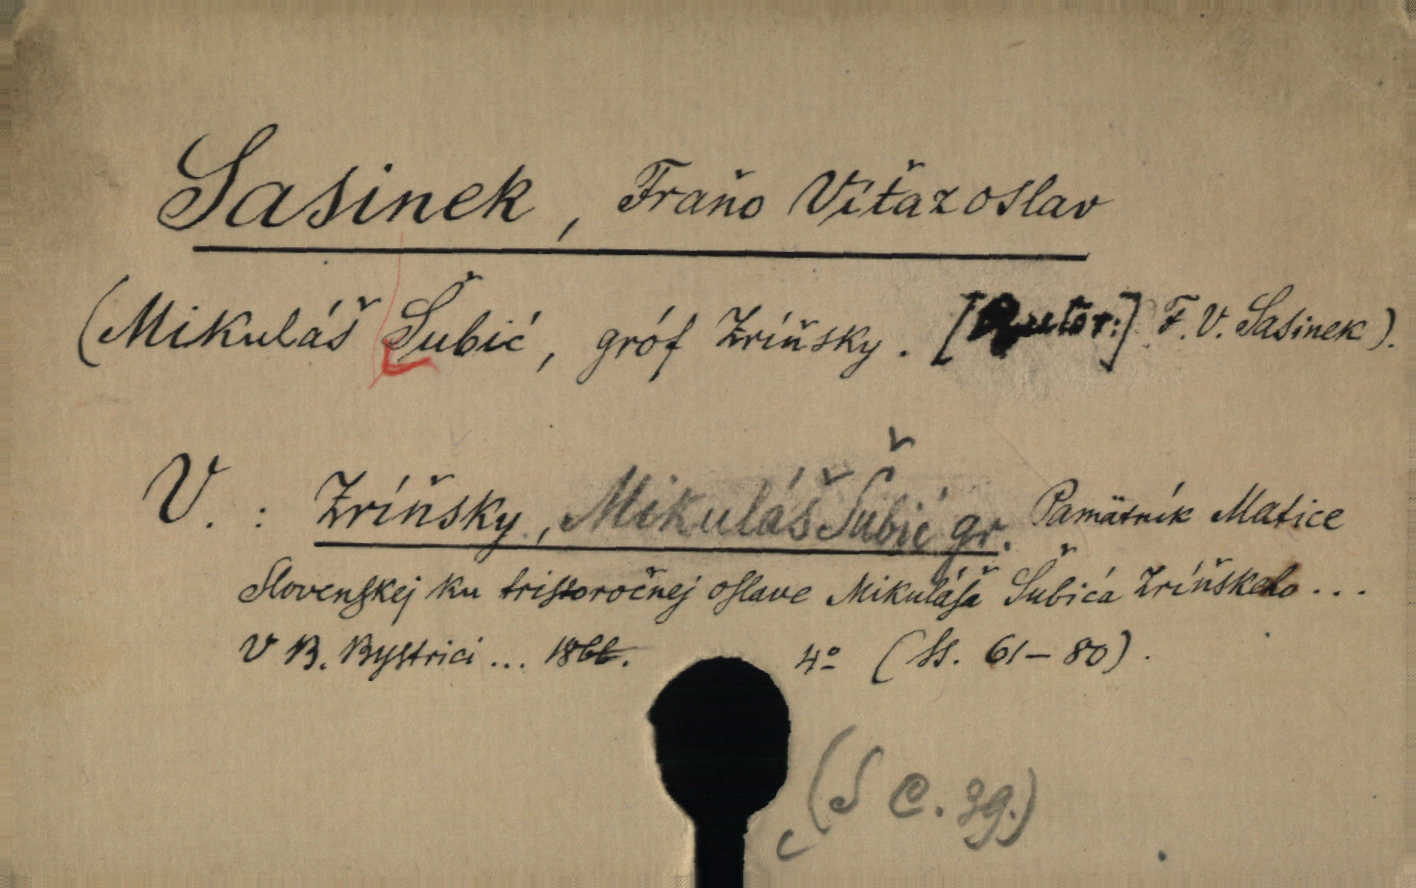 Sasinek, Fraňo Víťazoslav
(Mikuláš Šubić, gróf Zríňsky. [Autor:] F. V. Sasinek).
V. : Zríňsky, Mikuláš Šubić gr. Pamätník Matice
Slovenskej ku tristoročnej oslave Mikuláša Šubića Zríňskeho...
V B. Bystrici... 1866. 4° (Ss. 61-80).
(S C. 39.)